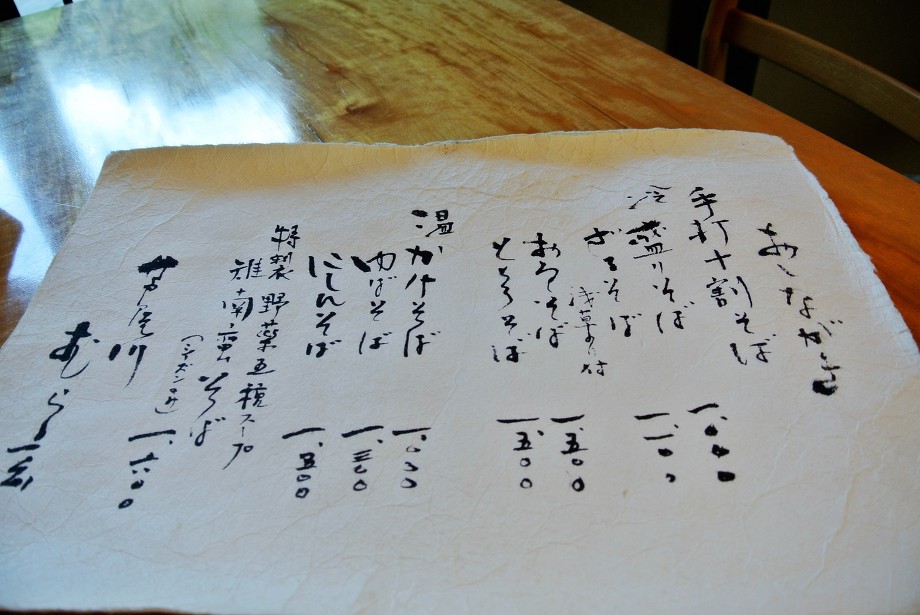 おしながき
手打十割そば
冷 盛りそば 一、〇〇〇
ざるそば 一、一〇〇
浅草のり付
おろしそば 一、五〇〇
とろろそば 一、五〇〇
温 かけそば 一、〇〇〇
ゆばそば 一、三〇〇
にしんそば 一、五〇〇
特製 野薬五種スープ
雉南蛮そば 一、六〇〇
芦屋川
むら玄